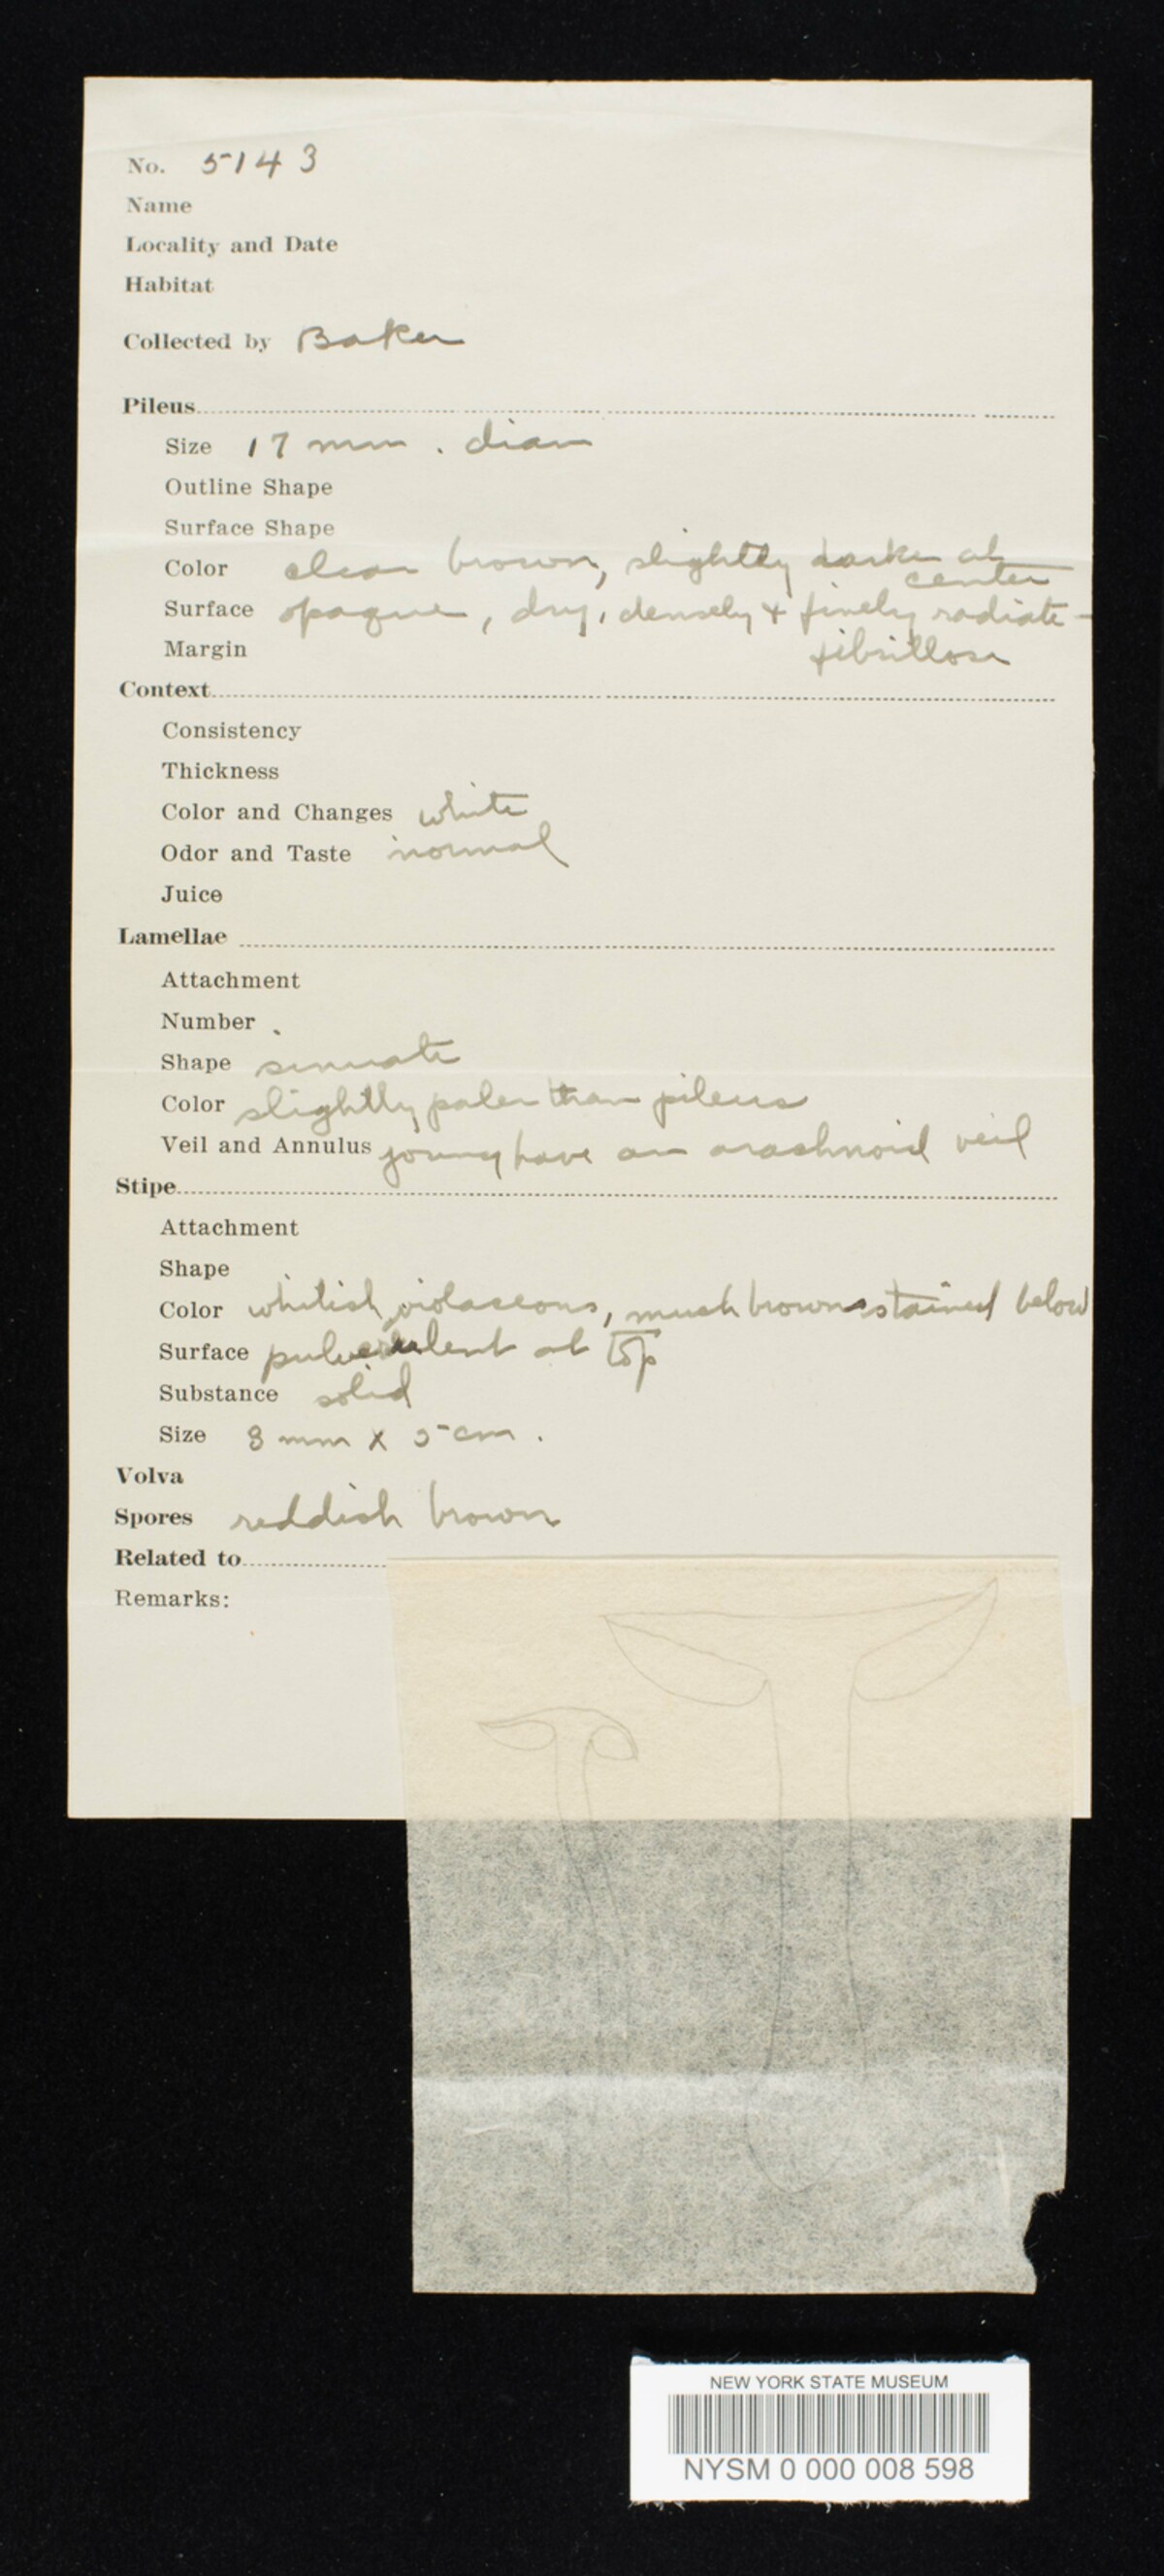 No. 5143
Name
Locality and Date
Habitat
Collected by Baker
Pileus
Size 17 mm. diam
Outline Shape
Surface Shape
Color clear brown, slightly darker at
center
Surface opaque, dry, densely & finely radiate-
Margin fibrillose
Context
Consistency
Thickness
Color and Changes white
Odor and Taste normal
Juice
Lamellae
Attachment
Number
Shape sinuate
Color slightly paler than pileus
Veil and Annulus young have an arachnoid veil
Stipe
Attachment
Shape
Color whitish, violaceous, much brown stained below
Surface pulverulent at top
Substance solid
Size 8 mm x 5 cm.
Volva
Spores reddish brown
Related to
Remarks:
NEW YORK STATE MUSEUM
NYSM 0 000 008 598